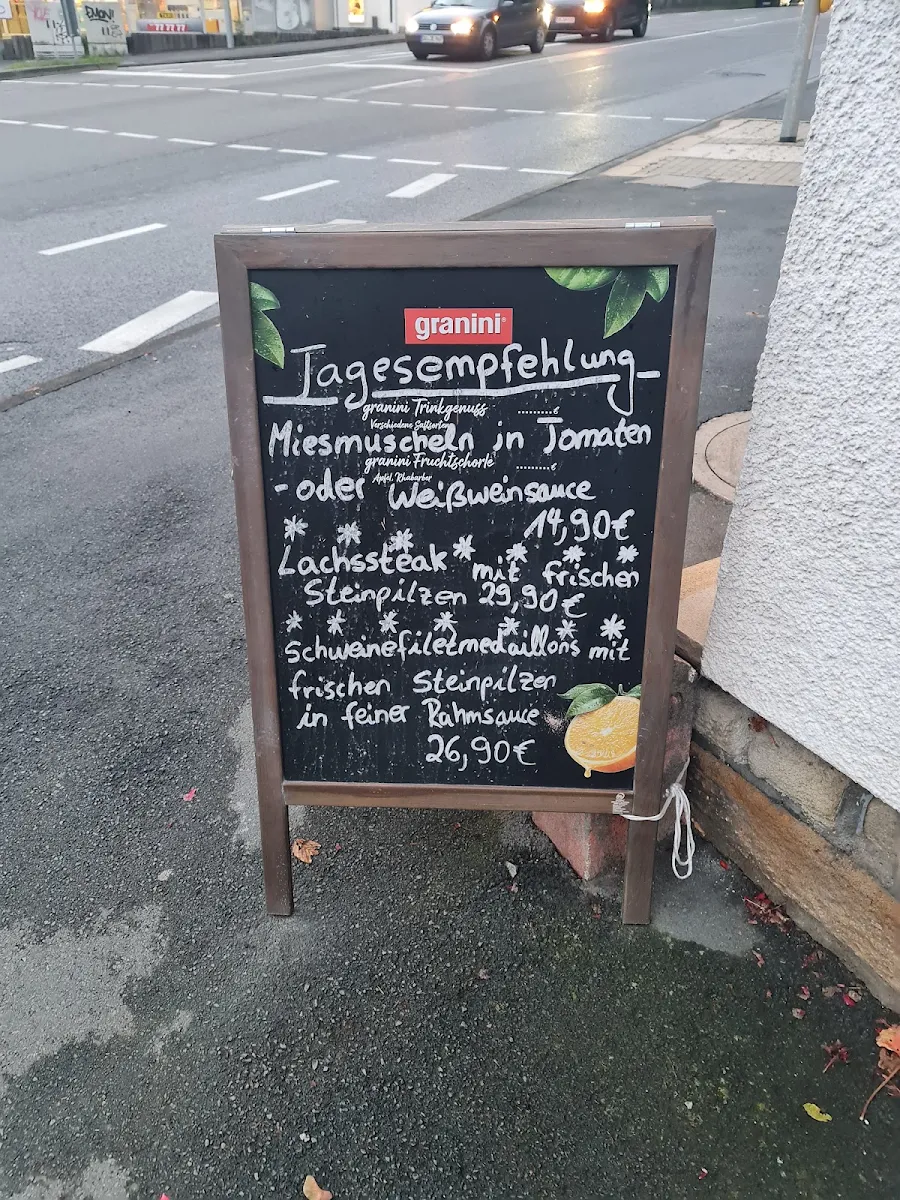 granini
Tagesempfehlung
granini Trinkgenuss ........€
Verschiedene Saftsorten
Miesmuscheln in Tomaten
granini Fruchtschorle ........€
Apfel, Rhabarber
- oder Weißweinsauce
14,90€
* * * * * * *
Lachssteak mit frischen
Steinpilzen 29,90€
* * * * * * *
Schweinefiletmedaillons mit
frischen Steinpilzen
in feiner Rahmsauce
26,90€